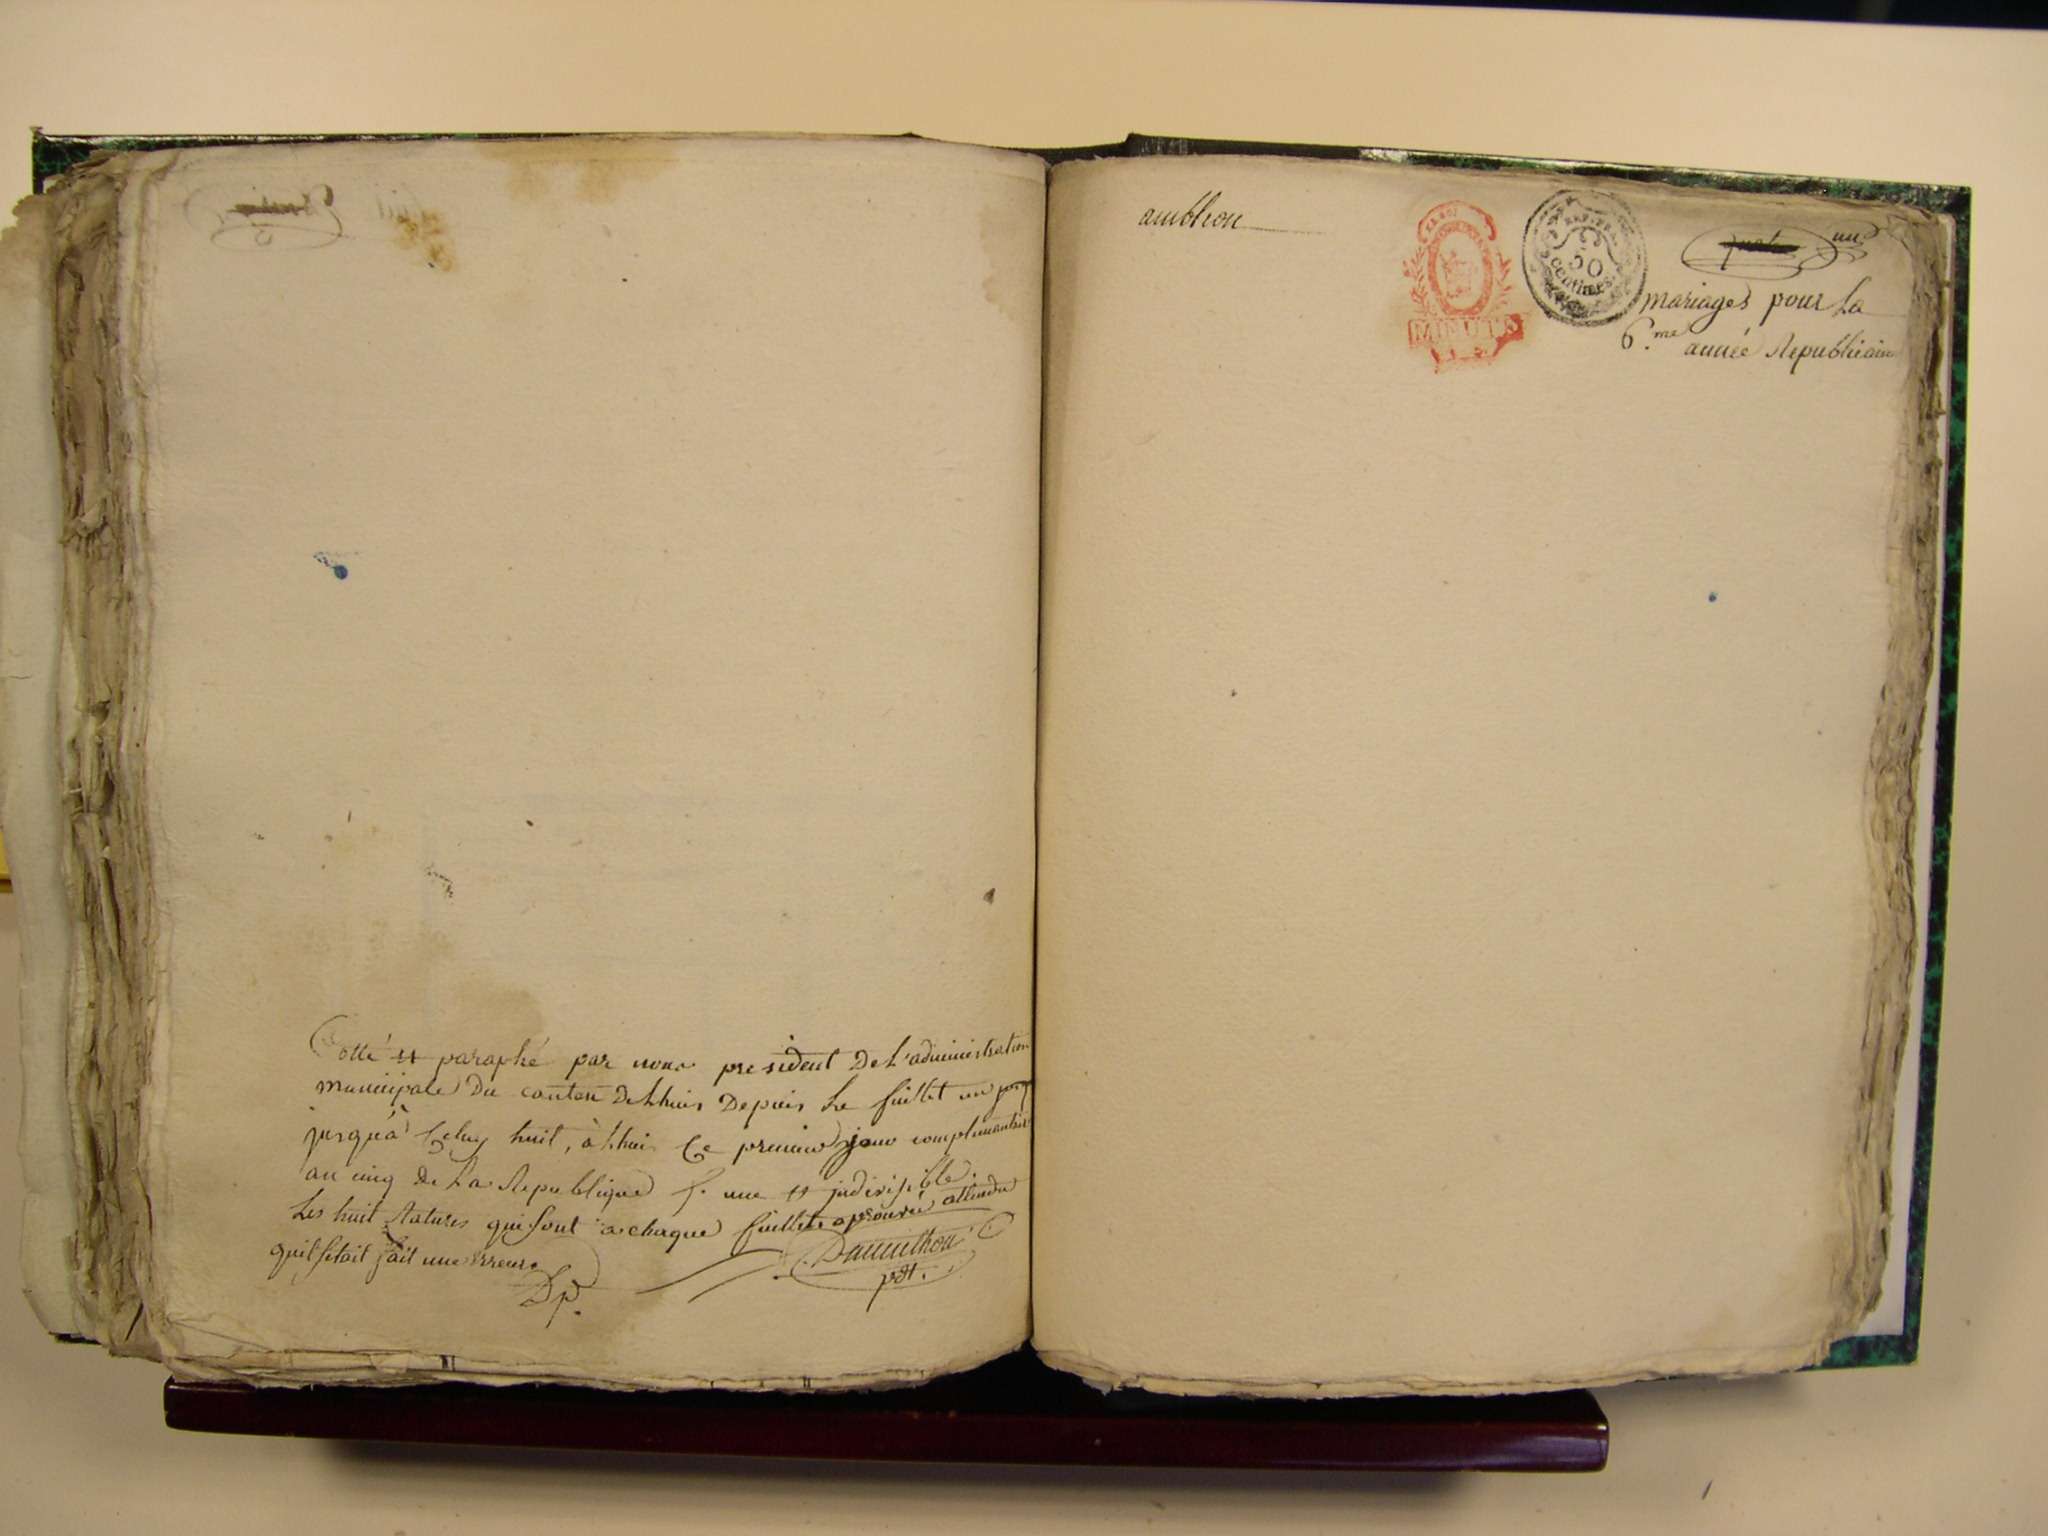 Cotté et paraphé par nous president De L'administration
municipale Du canton De Lhuis Depuis Le feuillet un
jusqu'a Celuy huit, à Lhuis Ce premier jour complimentaire
an cinq de La Republique f. une et indivisible.
Les huit Ratures qui sont a chaque feuillet aprouvé attendu
quil s'etait fait une erreur.
Dp.
Damithon
pdt.
ambleon
MINUTE
REP. FRA.
50
centimes.
un
mariages pour La
6.me année Republicaine